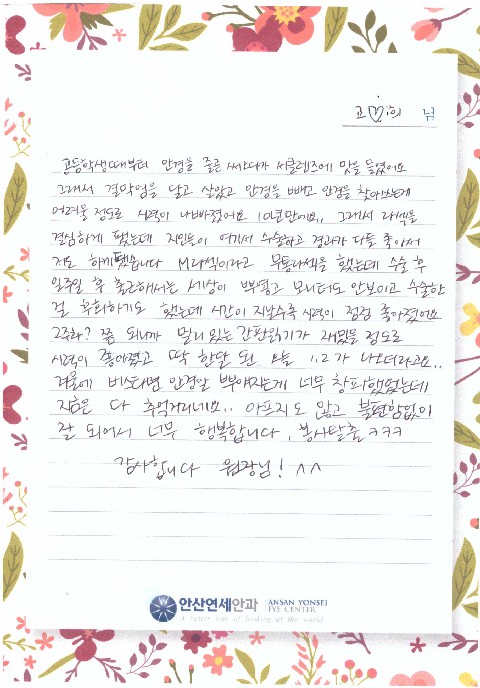 고♡희 님
고등학생때부터 안경을 줄곧 써오다가 써클렌즈에 맛을 들였어요
그래서 결막염을 달고 살았고 안경을 빼고 안경을 찾아쓰는게
어려울 정도로 시력이 나빠졌어요 10년만에요.. 그래서 라섹을
결심하게 됐는데 지인들이 여기서 수술하고 결과가 다들 좋아서
저도 하게됐습니다 M라섹이라고 무통라섹을 했는데 수술 후
일주일 후 출근해서는 세상이 뿌옇고 모니터도 안보이고 수술한
걸 후회하기도 했는데 시간이 지날수록 시력이 점점 좋아졌어요
2주차? 쯤 되니까 멀리 있는 간판읽기가 재밌을 정도로
시력이 좋아졌고 딱 한달 된 오늘 1.2가 나오더라고요..
겨울에 버스타면 안경알 뿌얘지는게 너무 창피했었는데
지금은 다 추억거리네요.. 아프지도 않고 불편함없이
잘 되어서 너무 행복합니다. 봉사탈출 ㅋㅋㅋ
감사합니다 원장님! ^^
안산연세안과 ANSAN YONSEI EYE CENTER
A better way of looking at the world